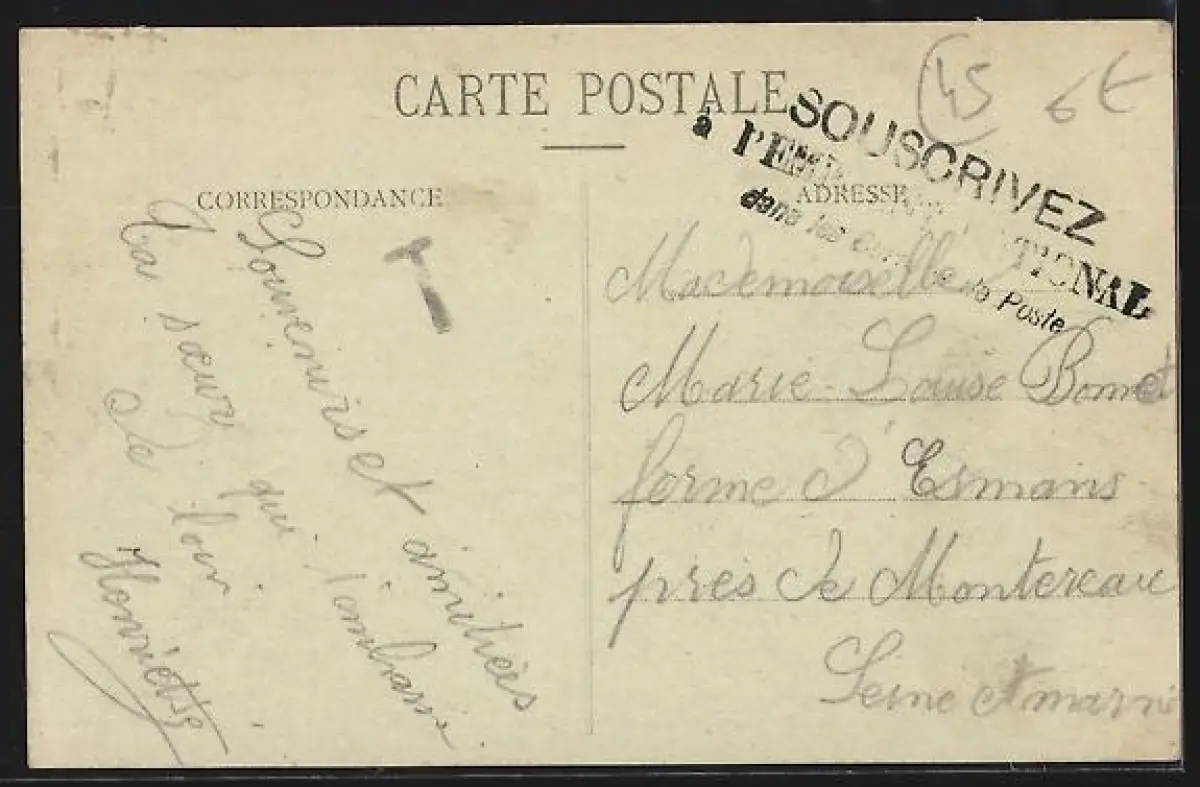 CARTE POSTALE
(45
6€
SOUSCRIVEZ
à l'EMPRUNT NATIONAL
dans les bureaux de Poste
CORRESPONDANCE
ADRESSE
Souvenirs et amitiés
Ta sœur qui t'embrasse
de loin
Henriette
Mademoiselle
Marie-Louise Bonnet
ferme d'Esmans
près de Montereau
Seine et marne